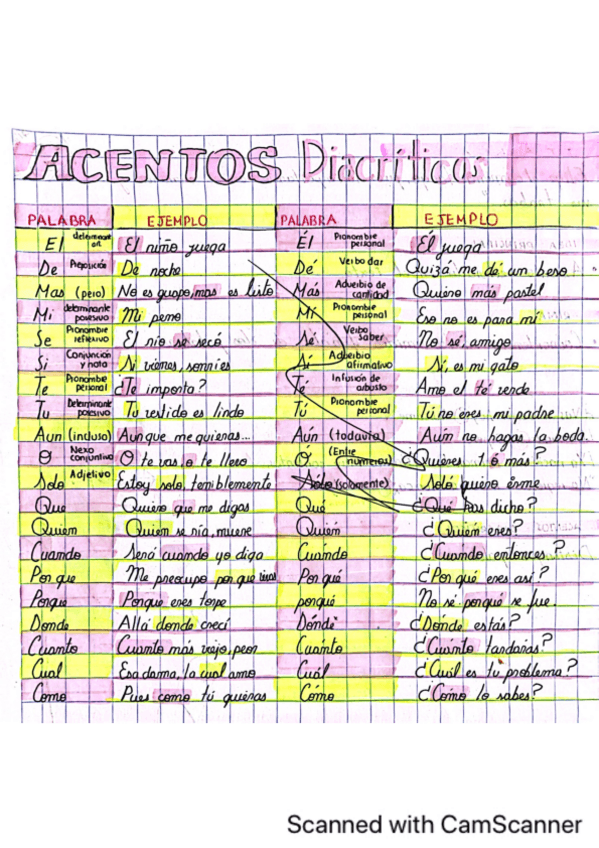 ACENTOS Diacríticos
PALABRA EJEMPLO PALABRA EJEMPLO
El determinante art. El niño juega Él Pronombre personal Él juega
De Preposición De noche Dé Verbo dar Quizá me dé un beso
Mas (pero) No es guapo, mas es listo Más Adverbio de cantidad Quiero más pastel
Mi determinante posesivo Mi perro Mí Pronombre personal Eso no es para mí
Se Pronombre reflexivo El río se secó Sé Verbo Saber No sé, amigo
Si Conjunción y nota Si vienes, sonríes Sí Adverbio afirmativo Sí, es mi gato
Te Pronombre personal ¿Te importa? Té Infusión de arbusto Amo el té verde
Tu Determinante posesivo Tu vestido es lindo Tú Pronombre personal Tú no eres mi padre
Aun (incluso) Aun que me quieras... Aún (todavía) Aún no hagas la boda
O Nexo conjuntivo O te vas, o te llevo Ó (Entre números) ¿Quieres 1 ó más?
Solo Adjetivo Estoy solo, terriblemente Sólo (solamente) Sólo quiero irme
Que Quiero que me digas Qué ¿Qué has dicho?
Quien Quien se ría, muere Quién ¿Quién eres?
Cuando Será cuando yo diga Cuándo ¿Cuándo entonces?
Por que Me preocupo por que Por qué ¿Por qué eres así?
Porque Porque eres torpe porqué No sé porqué se fue.
Donde Allá donde crecí Dónde ¿Dónde estás?
Cuanto Cuanto más viejo, peor Cuánto ¿Cuánto tardarás?
Cual Esa dama, la cual amo Cuál ¿Cuál es tu problema?
Como Pues como tú quieras Cómo ¿Cómo lo sabes?
Scanned with CamScanner